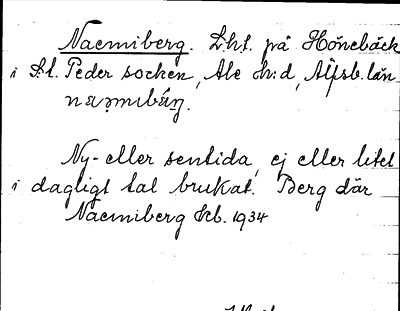 Naemiberg. L.h.t. på Hönebäck
i St. Peder socken, Ale h:d, Älfsb. län
Ny- eller sentida, ej eller litet
i dagligt tal brukat. Berg där
Naemiberg Ekb. 1934